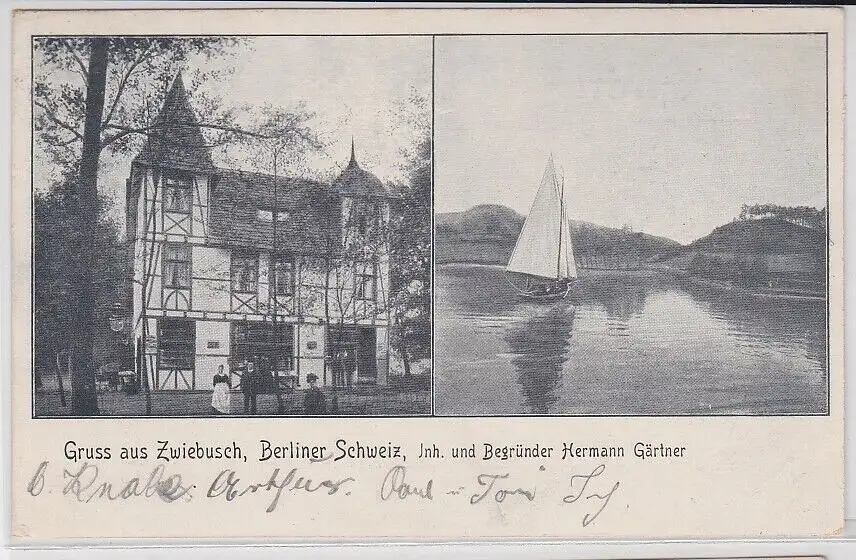 Gruss aus Zwiebusch, Berliner Schweiz, Jnh. und Begründer Hermann Gärtner
Arthur. Paul u